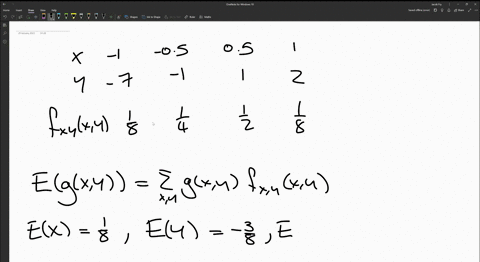 x -1 -0.5 0.5 1
y -7 -1 1 2
f_{xy}(x,y) 1/8 1/4 1/2 1/8
E(g(x,y)) = Σ_{x,y} g(x,y) f_{x,y}(x,y)
E(x) = 1/8 , E(y) = -3/8 , E